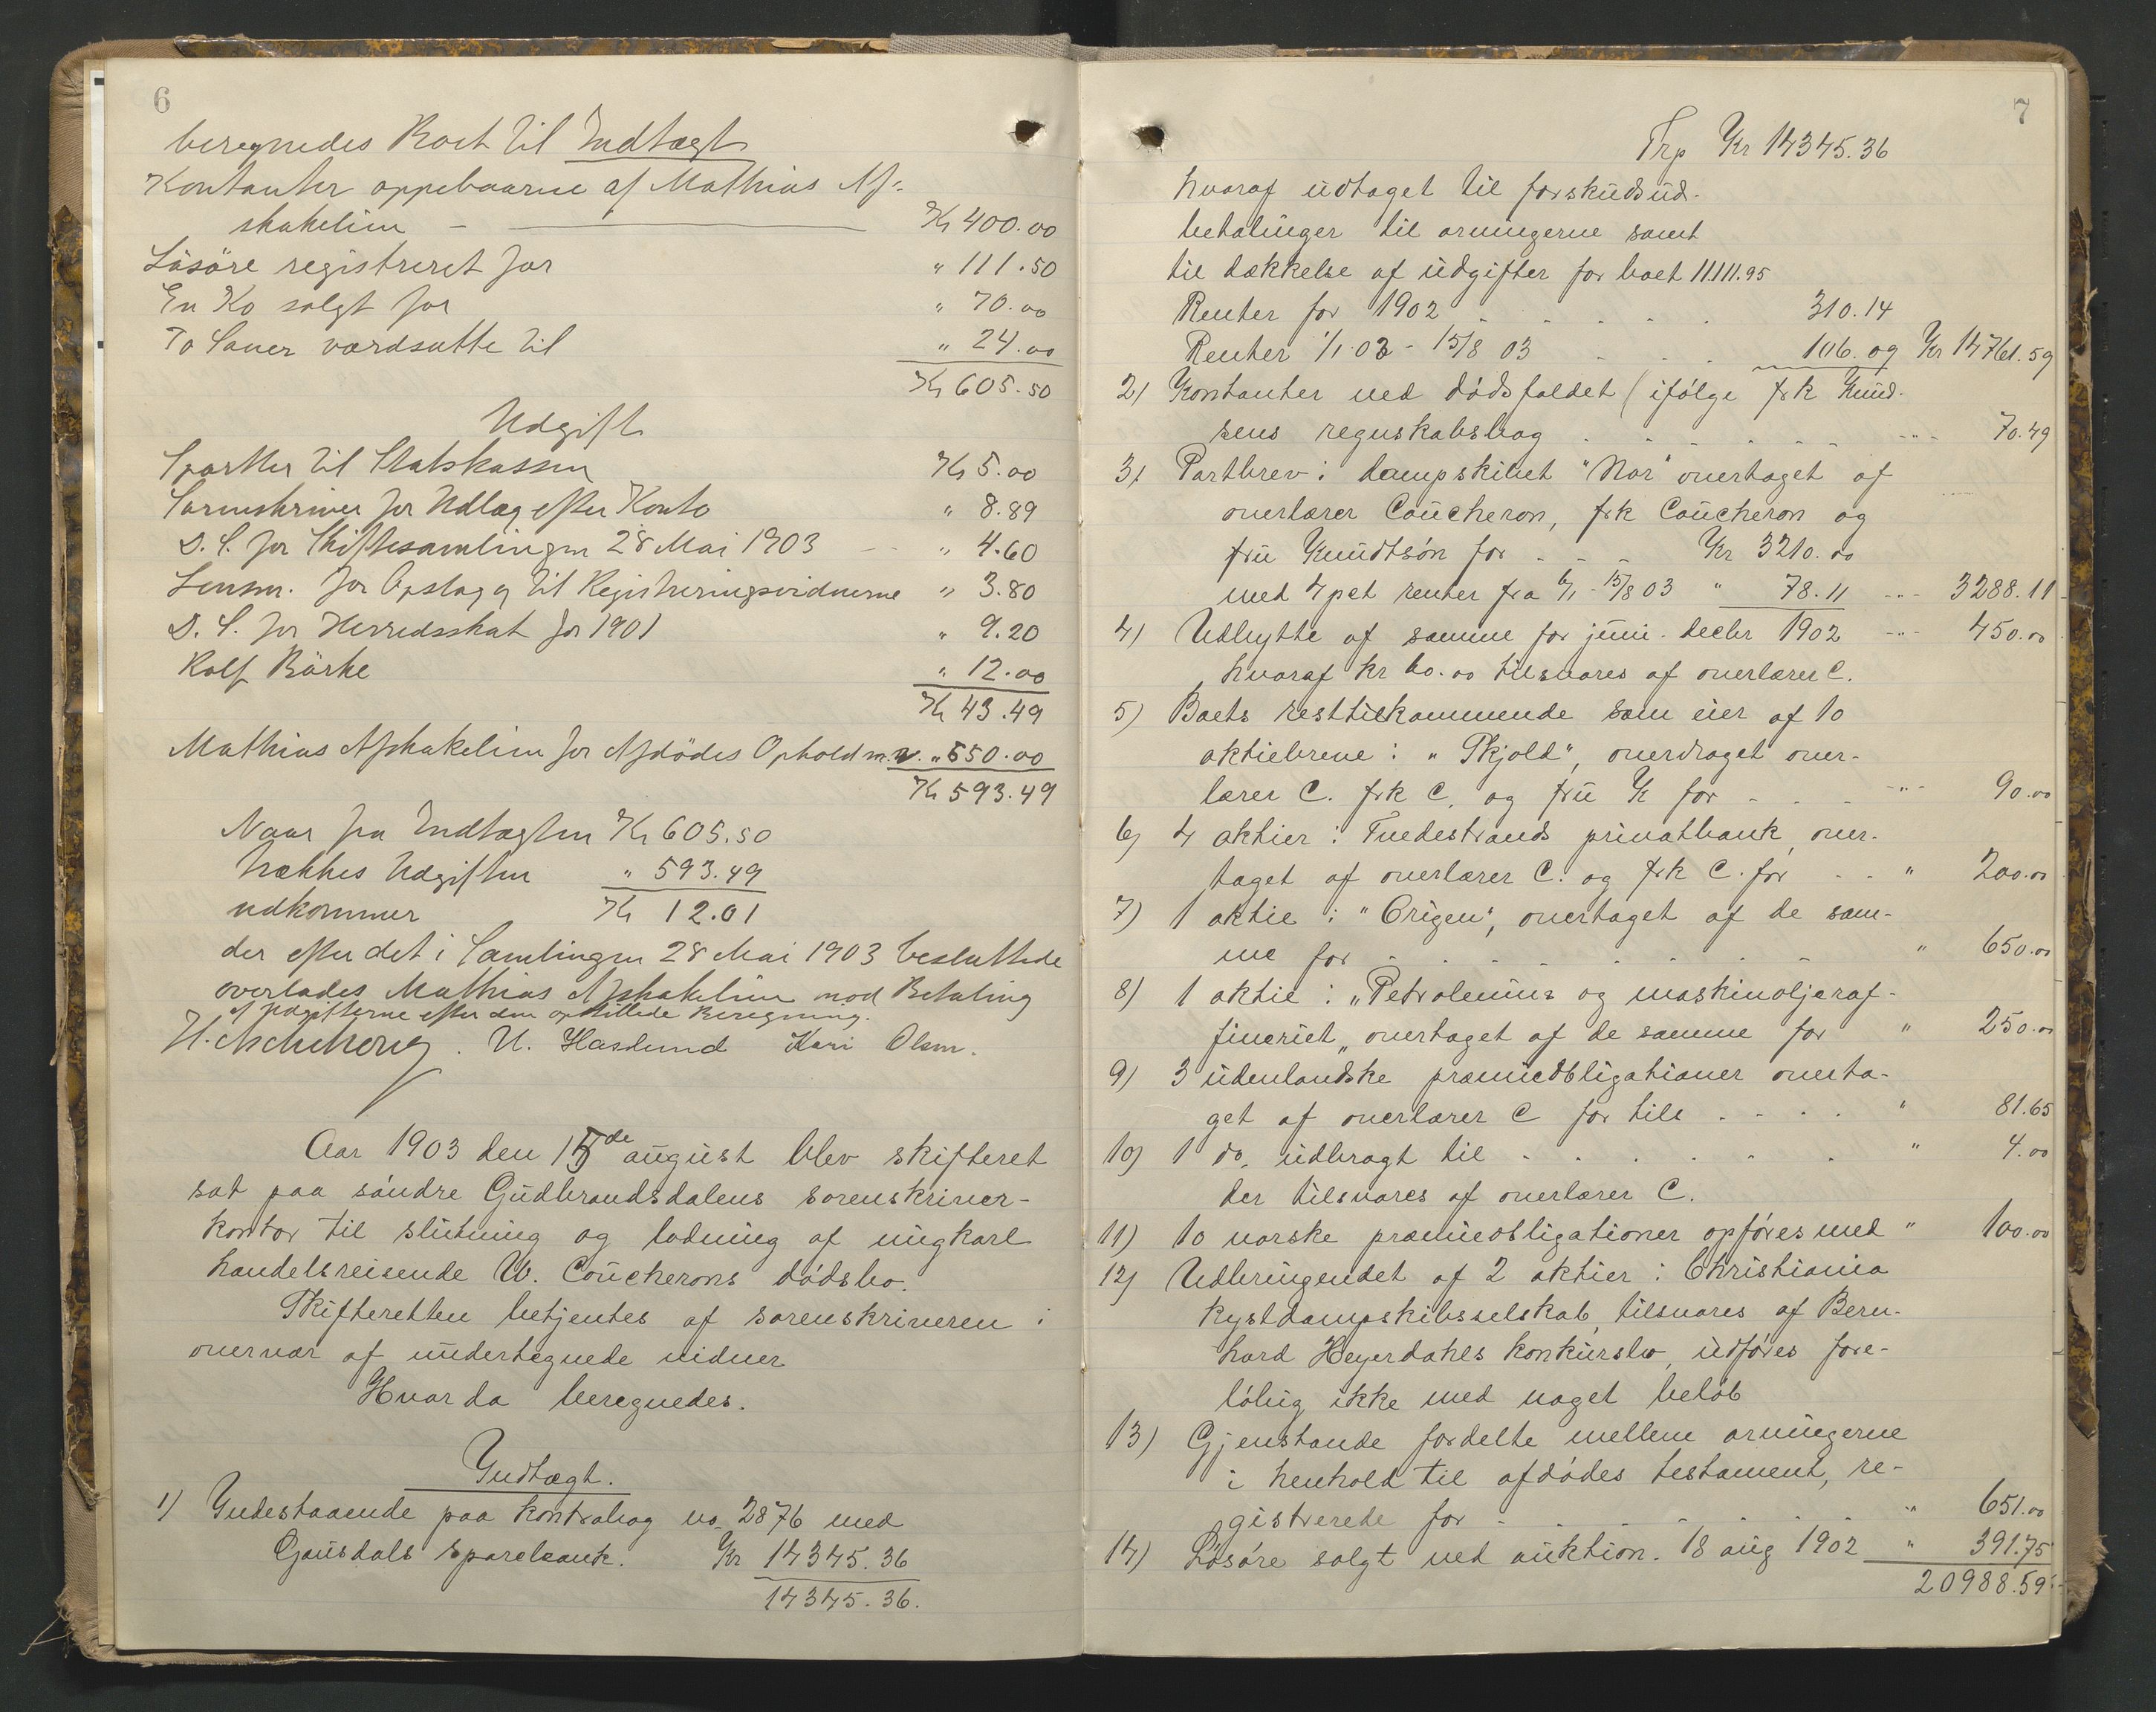 6
beregnedes Boet til Indtægt
Kontanter oppebaarne af Mathias Af-
skakelien - Kr 400.00
Løsöre registreret for " 111.50
En Ko solgt for " 70.00
To Sauer værdsatte til " 24.00
Kr 605.50
Udgift
Sportler til Statskassen Kr 5.00
Sorenskriver for Udlæg efter Konto " 8.89
D. S. for Skiftesamlingen 28 Mai 1903 - - " 4.60
Lensm. for Opslag og til Registreringsvidnerne " 3.80
D. S. for Herredsskat for 1901 " 9.20
Rolf Bårke " 12.00
Kr 43.49
Mathias Afskakelien for Afdødes Ophold m.v. " 550.00
Kr 593.49
Naar fra Indtægten Kr 605.50
trækkes Udgiften " 593.49
udkommer Kr 12.01
der efter det i Samlingen 28 Mai 1903 besluttede
overlades Mathias Afskakelien mod Betaling
af Udgifterne efter den opstillede Beregning.
U. Haslund Kari Olsen.
Aar 1903 den 15de august blev skifteret
sat paa søndre Gudbrandsdalens sorenskriver-
kontor til slutning og lodning af ungkarl
handelsreisende W. Coucherons dødsbo.
Skifteretten betjentes af sorenskriveren i
overvær af undertegnede vidner
Hvorda beregnedes.
Indtægt.
1) Indestaaende paa kontrabog no. 2876 med
Gausdals sparebank. Kr 14345.36
14345.36.
7
Trp Kr 14345.36
hvoraf udtaget til forskudsud-
betalinger til arvingerne samt
til dækkelse af udgifter for boet 11.111.95
Renter for 1902 . . . . . 310.14
Renter 1/1 03 - 15/8 03 . . . 106.09 Kr 14761.59
2) Kontanter ved dødsfaldet (ifølge frk Knud-
sens regnskabsbog . . . . . . -"- 70.49
3) Partbrev i dampskibet "Nor" overtaget af
overlærer Coucheron, frk Coucheron og
fru Knudtsøn for - - - Kr 3210.00
med 4 pct renter fra 6/1 - 15/8 03 " 78.11 -"- 3288.11
4) Udbytte af samme for juni - decbr 1902 -"- 450.00
hvoraf kr 60.00 tilsvares af overlærer C.
5) Boets resttilkommende som eier af 10
aktiebreve i "Skjold", overdraget over-
lærer C. frk C. og fru K for - . . -"- 90.00
6) 4 aktier i Tvedestrands privatbank, over-
taget af overlærer C. og frk C. for . . " 200.00
7) 1 aktie i "Origen", overtaget af de sam-
me for . . . . . . . . " 650.00
8) 1 aktie i "Petroleums og maskinoljeraf-
fineriet" overtaget af de samme for " 250.00
9) 3 udenlandske præmieobligationer overta-
get af overlærer C for tils . . . . " 81.65
10) 1 do. udbragt til . . . . . . " 4.00
der tilsvares af overlærer C.
11) 10 norske præmieobligationer opføres med " 100.00
12) Udbringendet af 2 aktier i Christiania
kystdampskibsselskab, tilsvares af Bern-
hard Heyerdahls konkursbo, udføres fore-
løbig ikke med noget beløb
13) Gjenstande fordelte mellem arvingerne
i henhold til afdødes testament, re-
gistrerede for - . . . . . . " 651.00
14) Løsøre solgt ved auktion. 18 aug 1902 " 391.75
20988.59